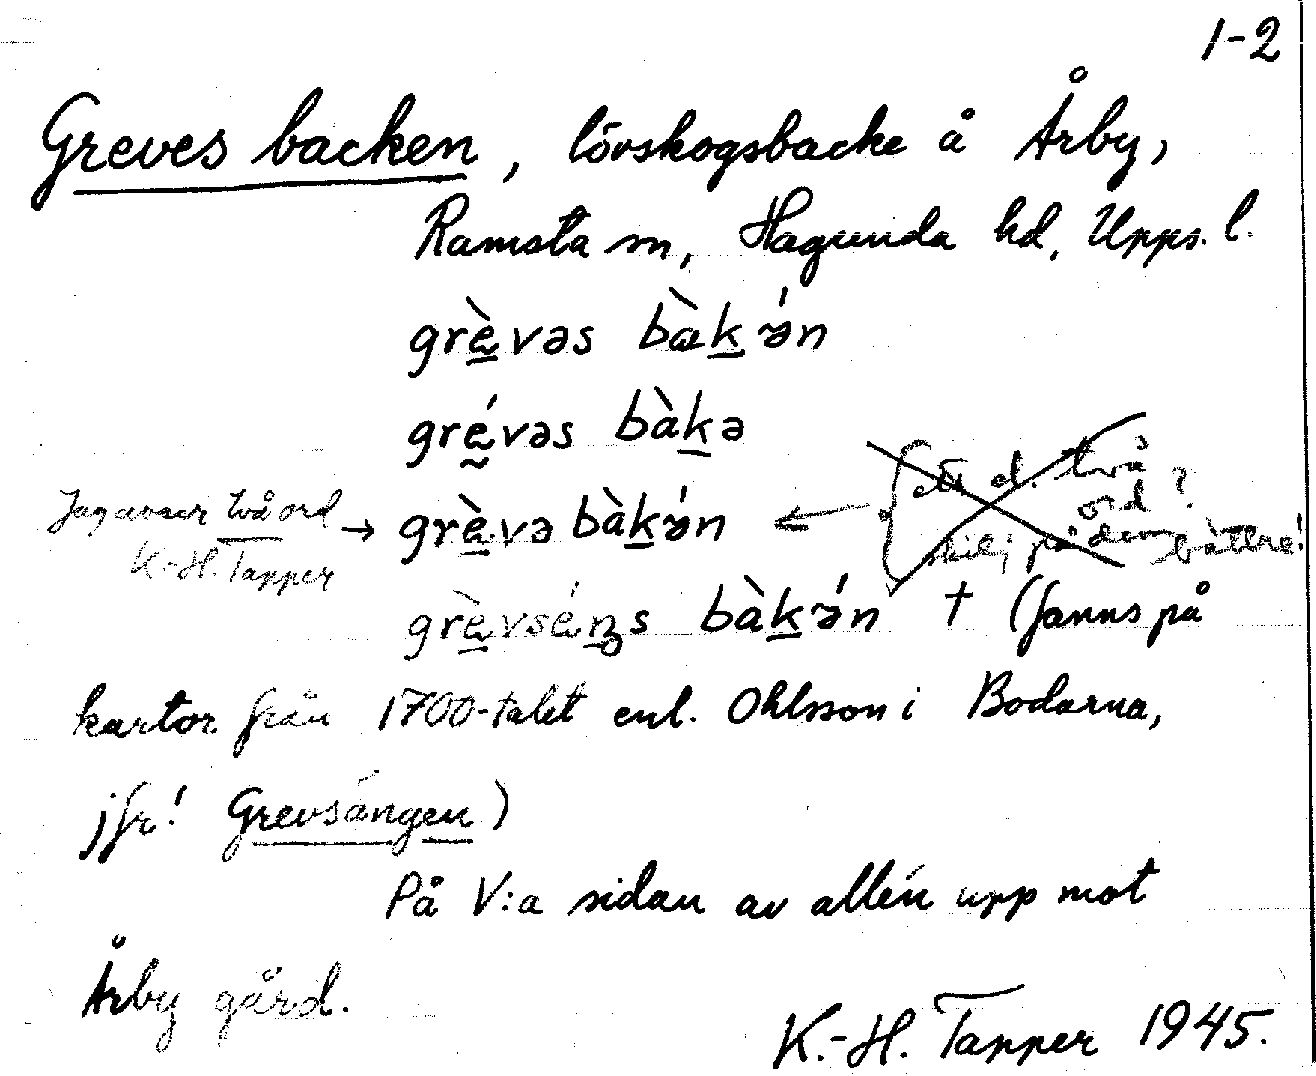 1-2
Greves backen, lövskogsbacke å Årby,
Ramsta sn, Hagunda hd, Upps. l.
grè̱vəs bàḵə́n
gré̱vəs bàḵə
Jag avser två ord → grè̱və bàḵə́n ← { ett el. två ord?
K.-H. Tapper
skilj på dem bättre!
grè̱vséŋs bàḵə́n † (fanns på
kartor från 1700-talet enl. Ohlsson i Bodarna,
jfr! Grevsängen)
På V:a sidan av allén upp mot
Årby gård.
K.-H. Tapper 1945.